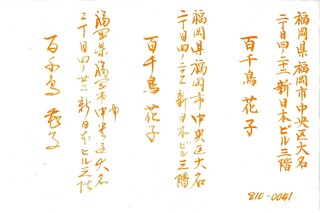 福岡県福岡市中央区大名
二丁目四-二十二 新日本ビル三階
百千鳥 花子
福岡県福岡市中央区大名
二丁目四-二十二 新日本ビル三階
百千鳥 花子
福岡県福岡市中央区大名
二丁目四-廿二 新日本ビル三階
百千鳥 花子
810-0041